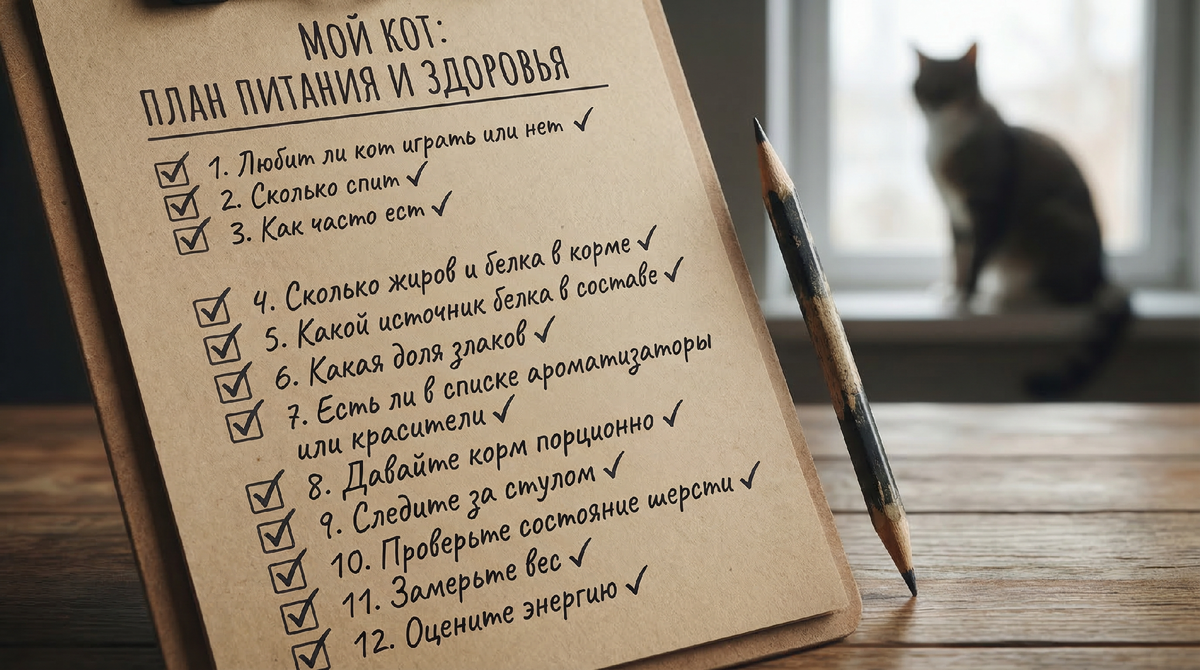 МОЙ КОТ:
ПЛАН ПИТАНИЯ И ЗДОРОВЬЯ
1. Любит ли кот играть или нет ✓
2. Сколько спит ✓
3. Как часто ест ✓
4. Сколько жиров и белка в корме ✓
5. Какой источник белка в составе ✓
6. Какая доля злаков ✓
7. Есть ли в списке ароматизаторы
или красители ✓
8. Давайте корм порционно ✓
9. Следите за стулом ✓
10. Проверьте состояние шерсти ✓
11. Замерьте вес ✓
12. Оцените энергию ✓